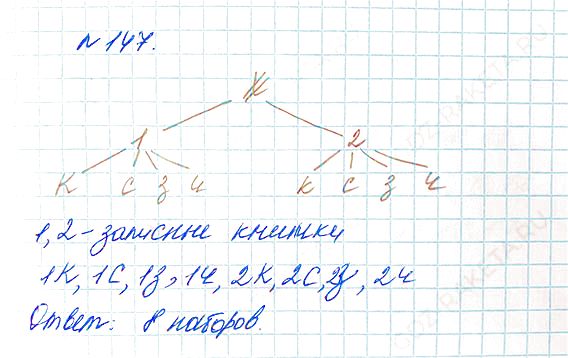 № 147.
Ж
1 2
К С З Ч К С З Ч
1,2 - записные книжки
1К, 1С, 1З, 1Ч, 2К, 2С, 2З, 2Ч
Ответ: 8 наборов.